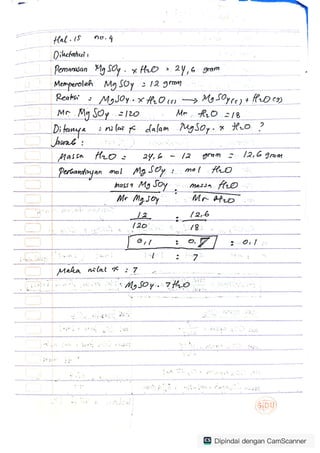 Hal. 15 no. 4
Diketahui :
Pemanasan MgSO4 . x H2O = 24,6 gram
Memperoleh MgSO4 = 12 gram
Reaksi : MgSO4 . x H2O (s) → MgSO4(s) + H2O (s)
Mr MgSO4 = 120 Mr H2O = 18
Ditanya : nilai x dalam MgSO4 . x H2O ?
Jawab :
Massa H2O = 24,6 - 12 gram = 12,6 gram
Perbandingan mol MgSO4 : mol H2O
massa MgSO4 : massa H2O
Mr MgSO4 Mr H2O
12 : 12,6
120 18
0,1 : 0,7 : 0,1
1 : 7
Maka nilai x = 7
MgSO4 . 7H2O
CS Dipindai dengan CamScanner